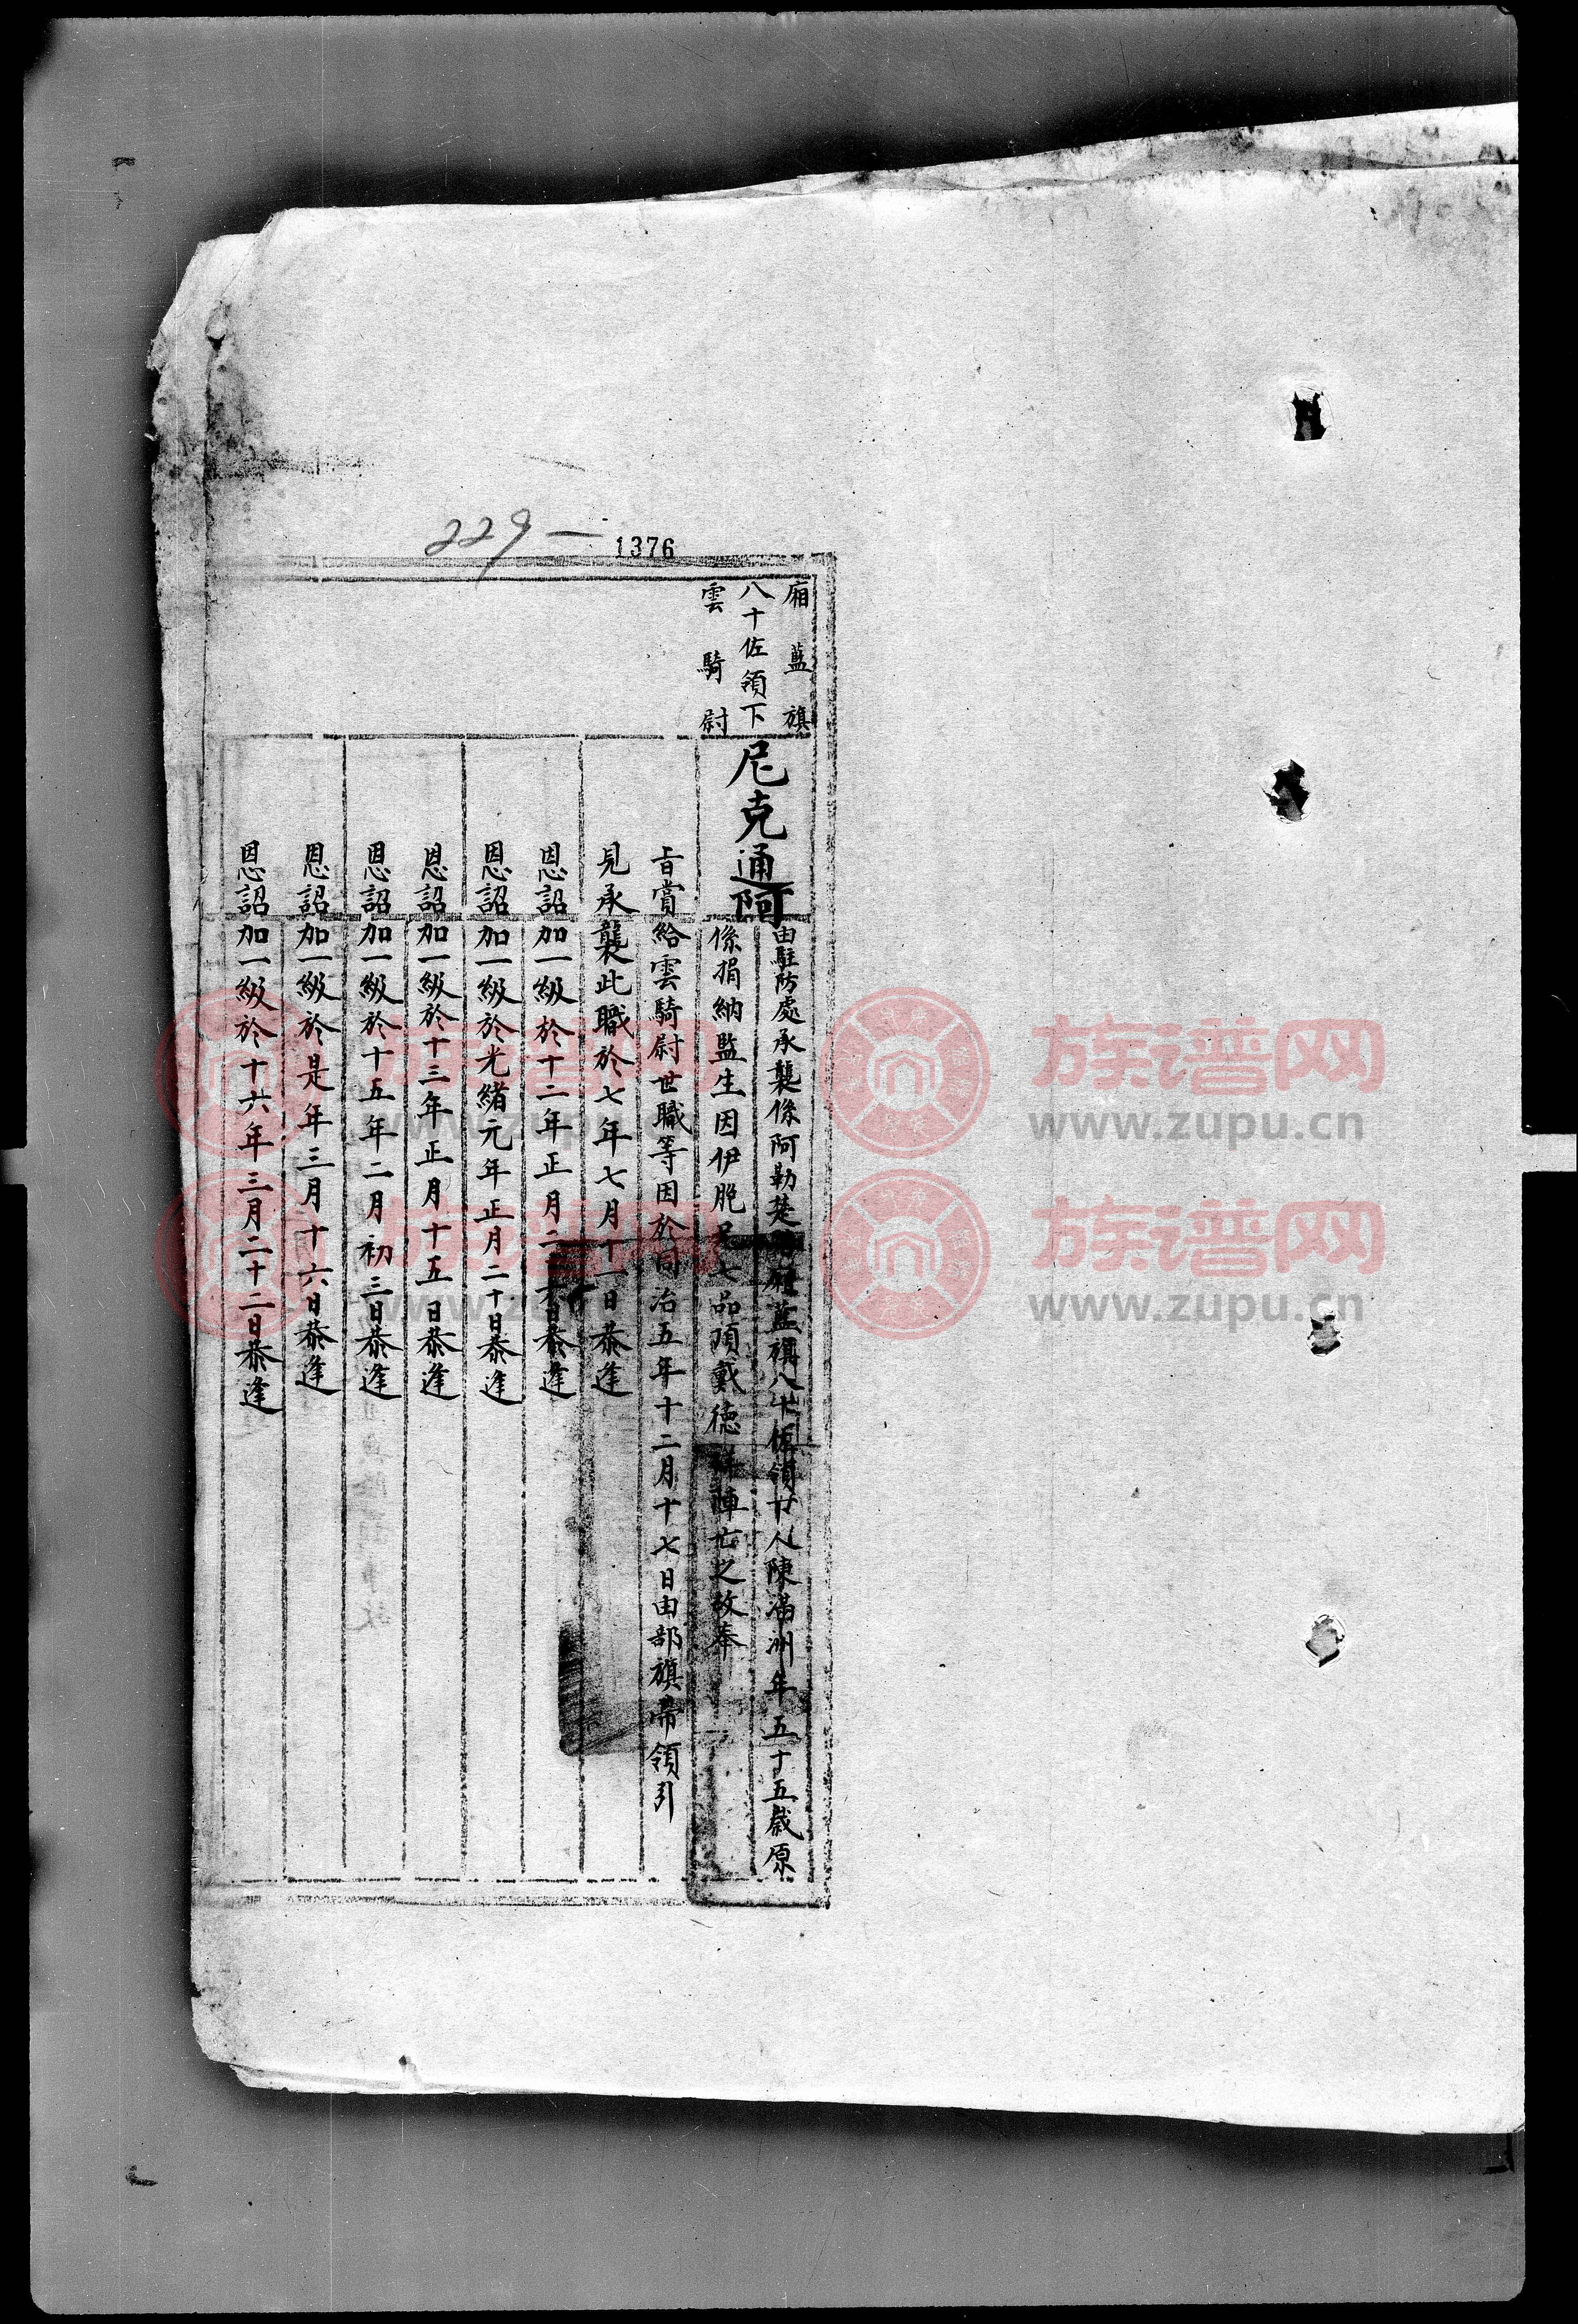 229一
1376
廂藍旗
八十佐領下
雲騎尉
尼克通阿
由駐防處承襲係阿勒楚廂藍旗八十佐領廿人陳滿洲年五十五歲原
係捐納監生因伊胞兄七品頂戴德祥陣亡之故奉
旨賞給雲騎尉世職等因於同治五年十二月十七日由部旗帶領引
見承襲此職於七年七月十一日恭逢
恩詔加一級於十二年正月二日恭逢
恩詔加一級於光緒元年正月二十日恭逢
恩詔加一級於十三年正月十五日恭逢
恩詔加一級於十五年二月初三日恭逢
恩詔加一級於是年三月十六日恭逢
恩詔加一級於十六年三月二十二日恭逢
族谱网
www.zupu.cn
族谱网
www.zupu.cn
族谱网
www.zupu.cn
族谱网
www.zupu.cn